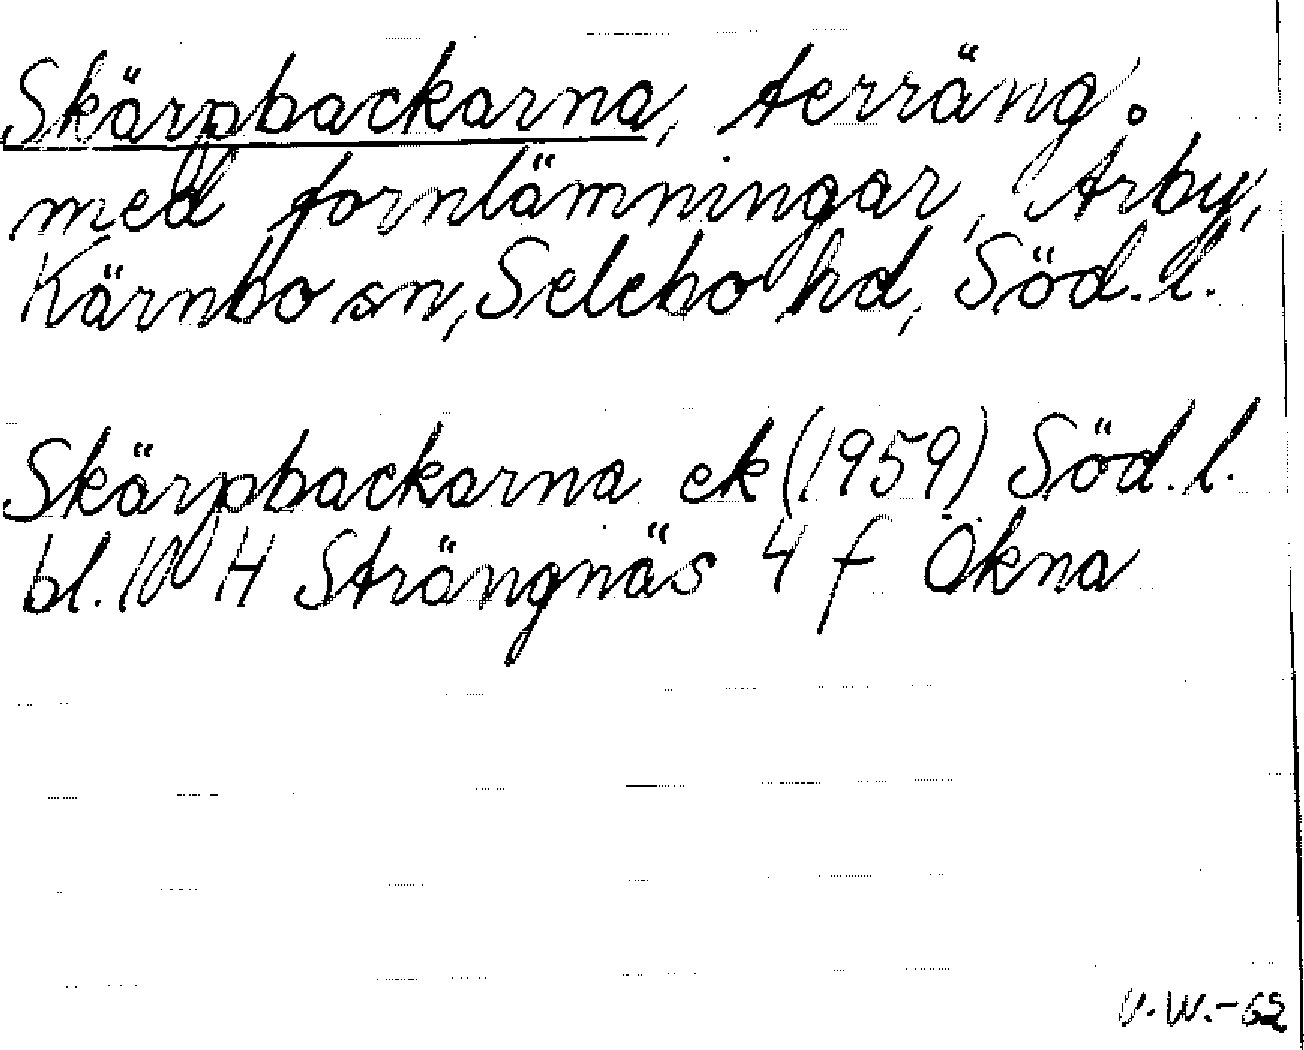 Skärpbackarna, terräng
med fornlämningar, Årby,
Kärnbo sn, Selebo hd, Söd. l.
Skärpbackarna ek (1959) Söd. l.
bl. 10 H Strängnäs 4 f Ökna
V.W.-62